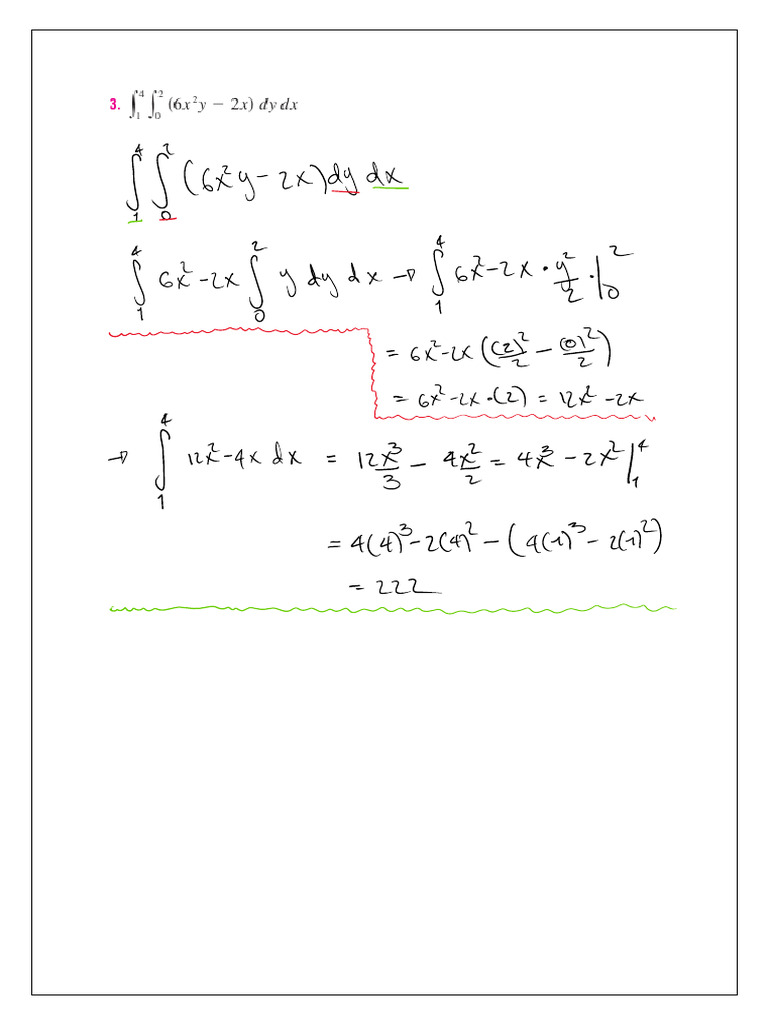 3. ∫₁⁴ ∫₀² (6x²y − 2x) dy dx
∫₁⁴ ∫₀² (6x²y − 2x) dy dx
∫₁⁴ 6x² − 2x ∫₀² y dy dx → ∫₁⁴ 6x² − 2x · y²/2 · |₀²
= 6x² − 2x ((2)²/2 − (0)²/2)
= 6x² − 2x · (2) = 12x² − 2x
→ ∫₁⁴ 12x² − 4x dx = 12x³/3 − 4x²/2 = 4x³ − 2x² |₁⁴
= 4(4)³ − 2(4)² − (4(1)³ − 2(1)²)
= 222